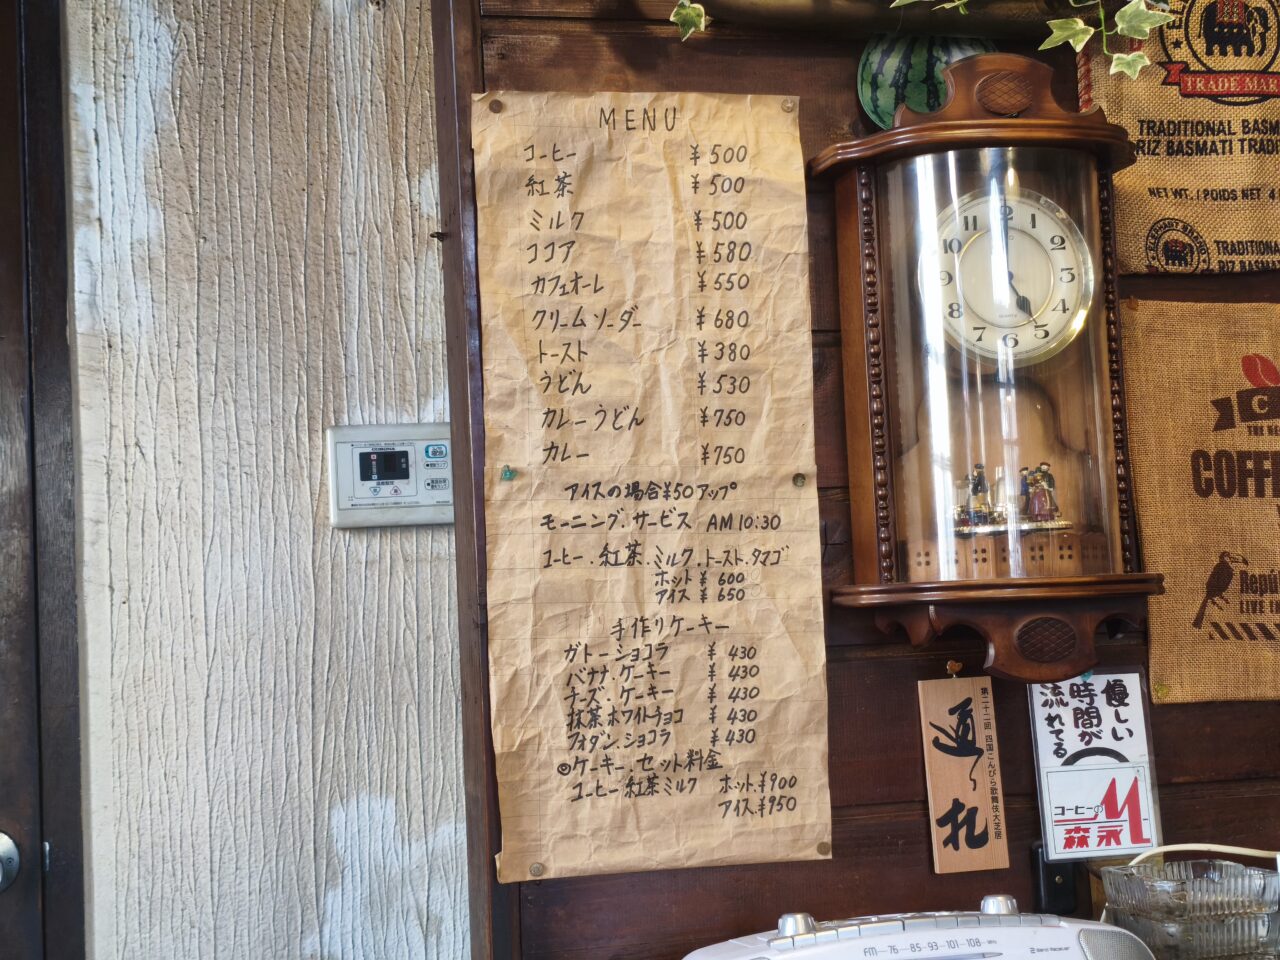 MENU
コーヒー ¥500
紅茶 ¥500
ミルク ¥500
ココア ¥580
カフェオーレ ¥550
クリームソーダー ¥680
トースト ¥380
うどん ¥530
カレーうどん ¥750
カレー ¥750
アイスの場合¥50アップ
モーニング.サービス AM10:30
コーヒー.紅茶.ミルク.トースト.タマゴ
ホット ¥600
アイス ¥650
手作りケーキー
ガトーショコラ ¥430
バナナ.ケーキー ¥430
チーズ.ケーキー ¥430
抹茶ホワイトチョコ ¥430
フォダン.ショコラ ¥430
◎ケーキー.セット料金
コーヒー紅茶ミルク ホット.¥900
アイス.¥950
12 1 2 3 4 5 6 7 8 9 10 11
QUARTZ
TRADE MAR
TRADITIONAL BASM
RIZ BASMATI TRADI
NET WT. / POIDS NET 4
TRADITIONAL
RIZ BASMAT
COFFE
Repú
LIVE
第二十二回 四国こんぴら歌舞伎大芝居
道々札
優しい
時間が
流れてる
コーヒーの
M
森永
FM 76 85 93 101 108 MHz
2 Band Receiver